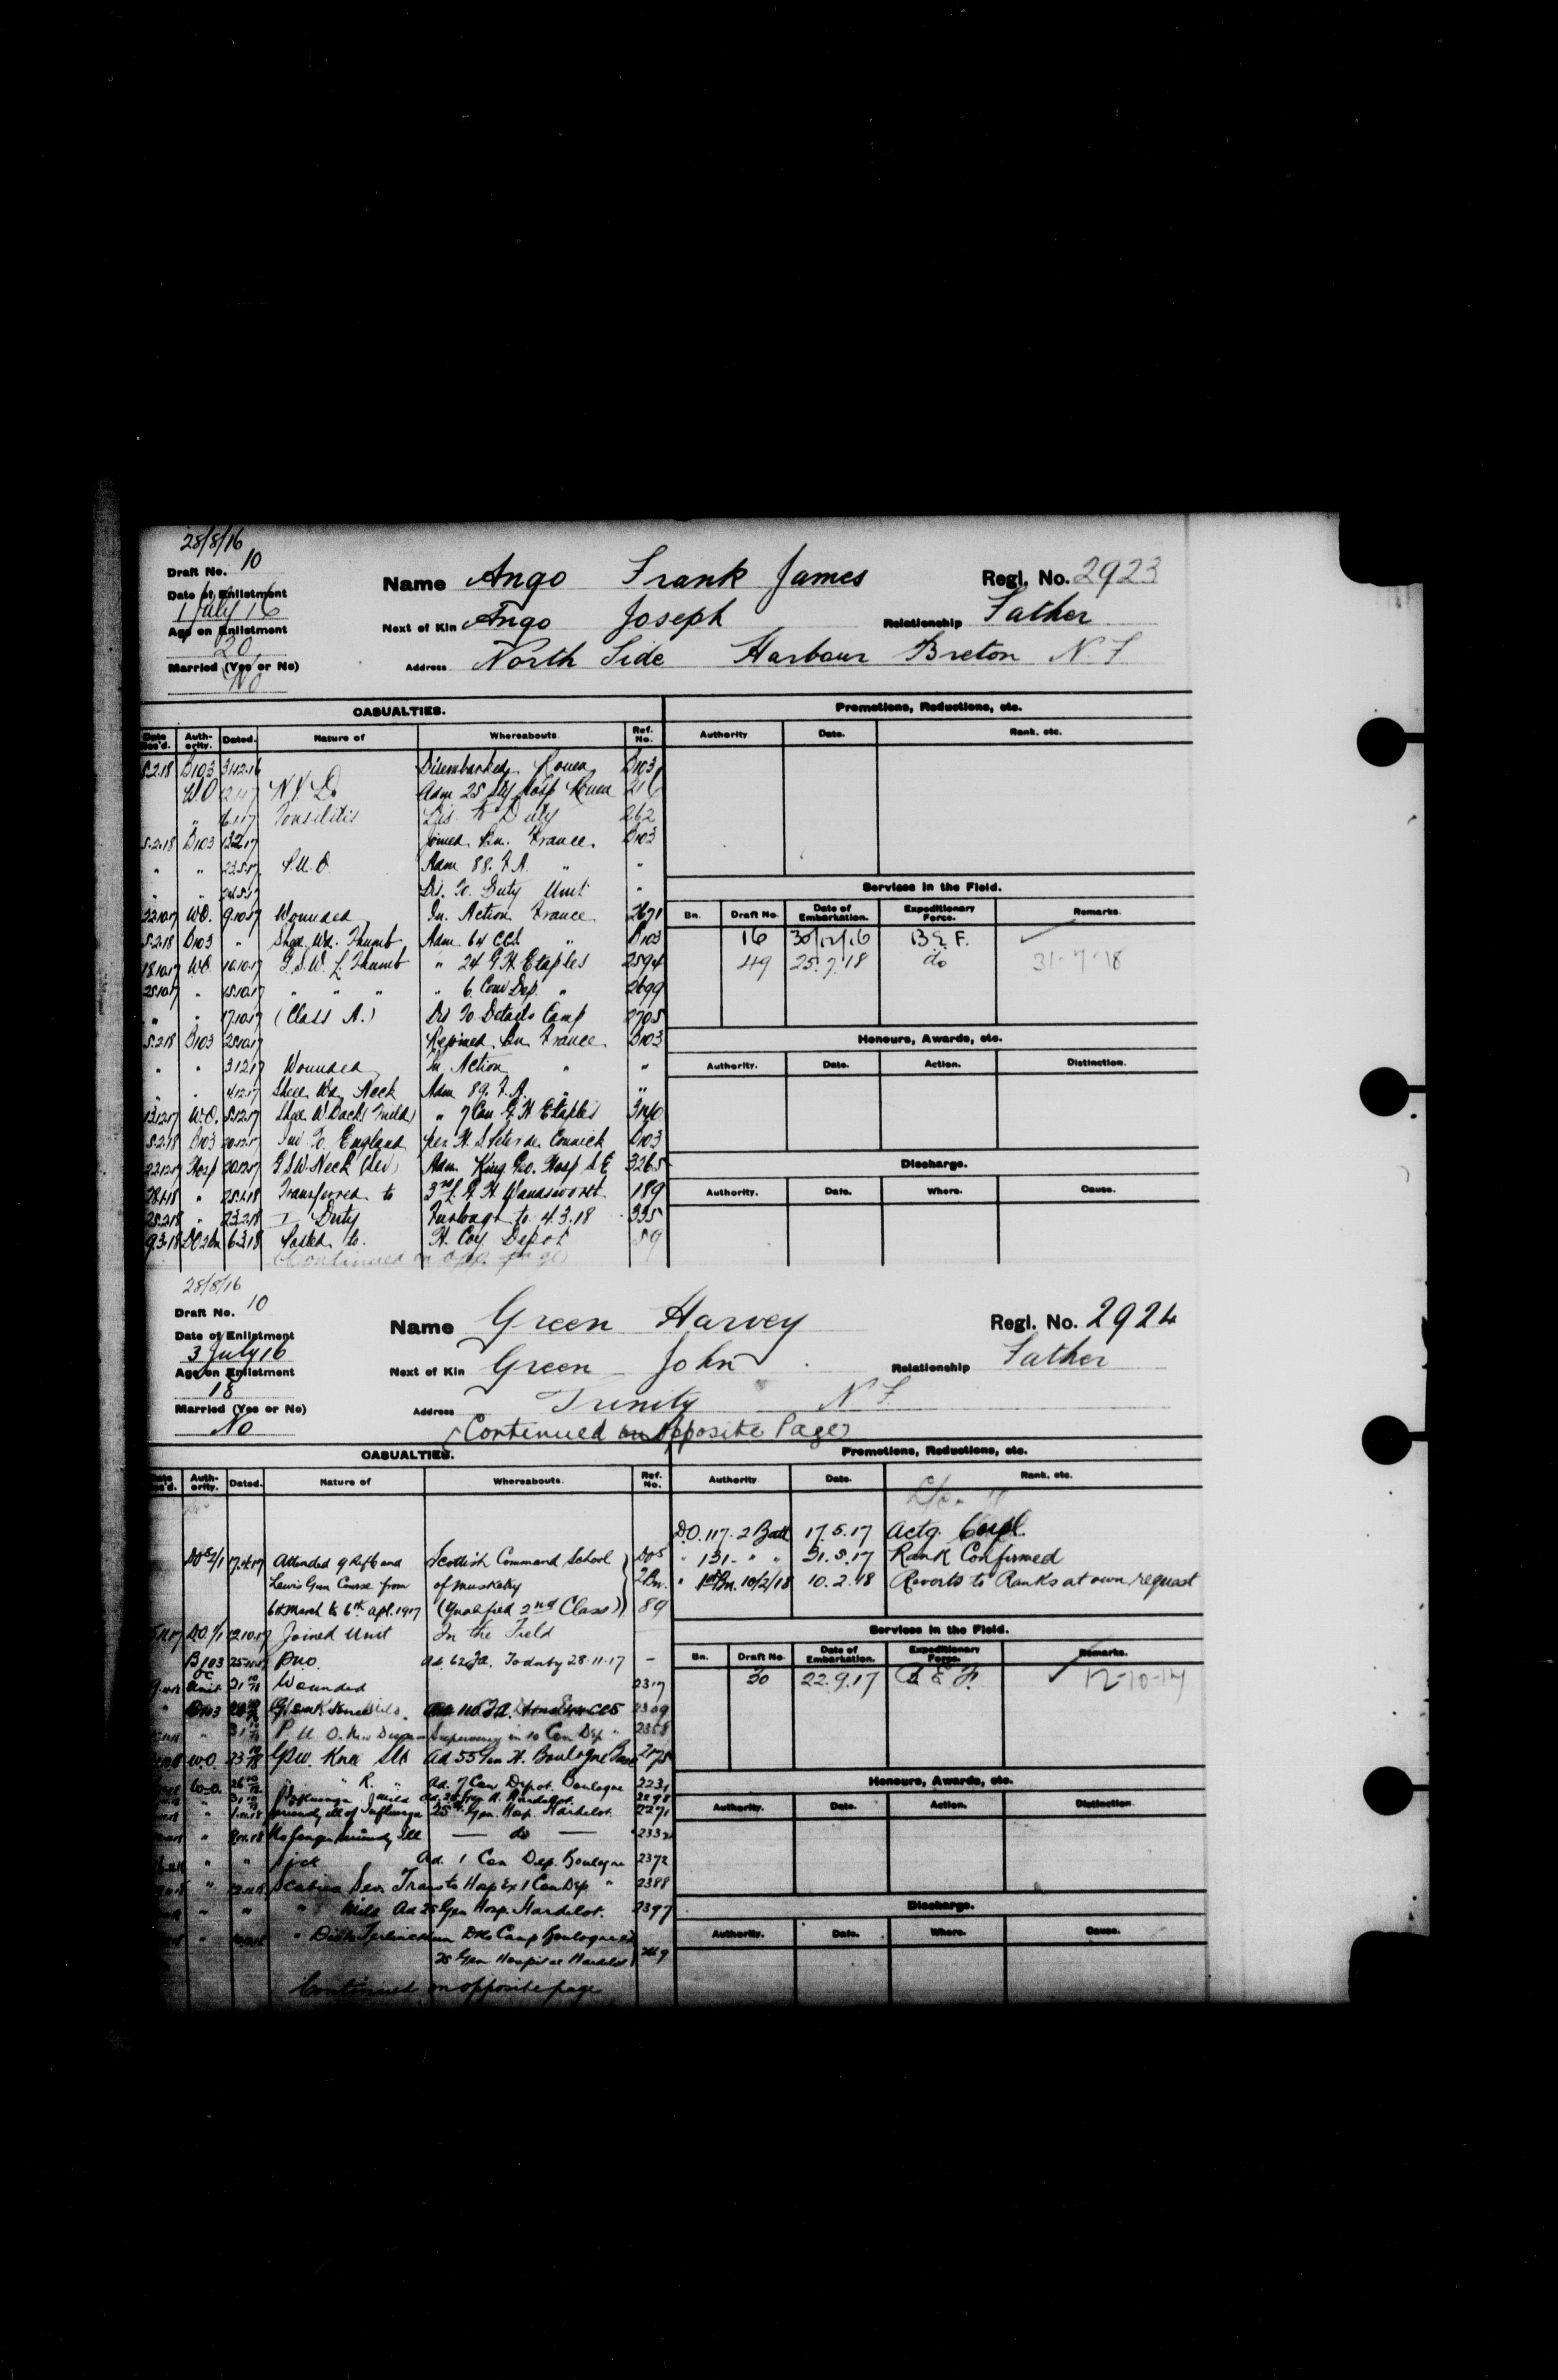 28/8/16
Draft No. 10
Name Ango Frank James Regl. No. 2923
Date of Enlistment
1 July 16
Next of Kin Ango Joseph Relationship Father
Age on Enlistment
20
Address North Side Harbour Breton N.F.
Married (Yes or No)
No
CASUALTIES.
Date Rec'd. Auth-ority. Dated. Nature of Whereabouts. Ref. No.
5.2.18 B103 31.12.16 Disembarked Rouen B103
W.O Adm 25 Sty Hosp Rouen 216
" 6.1.17 Tonsilitis Dis. to Duty 262
5.2.18 B103 13.2.17 Joined Bn. France. B103
" " 23.5.17 P.U.O. Adm 88. F.A. " "
" " 24.5.17 Dis. To. Duty Unit "
22.10.17 W.O. 9.10.17 Wounded In Action France 2671
5.2.18 B103 " Wd. Thumb Adm 64 CCS. " B103
18.10.17 W.O. 10.10.17 G.S.W. L. Thumb " 24 G.H. Etaples 2594
25.10.17 " 15.10.17 " " " " 6 Con Dep. " 2699
" " 17.10.17 (Class A.) Dis To Details Camp 2705
5.2.18 B103 25.10.17 Rejoined Bn France B103
" " 3.12.17 Wounded In Action " "
" " 4.12.17 Shell Wd. Neck Adm 89. F.A. " "
13.12.17 W.O. 5.12.17 Shell W. Back (mild) " 7 Can G.H Etaples 3140
5.2.18 B103 20.12.17 Inv To England per H.S. Peter de Connick B103
22.12.17 Hosp 20.12.17 G.S.W. Neck (Sev) Adm King Geo. Hosp S.E 3265
28.1.18 " 25.1.18 Transferred to 3rd L.G.H Wandsworth 189
25.2.18 " 23.2.18 Duty Furlough to 4.3.18 335
9.3.18 DO 2Bn 6.3.18 Posted to. H. Coy Depot 59
(Continued on opp. page)
Promotions, Reductions, etc.
Authority Date. Rank. etc.
Services in the Field.
Bn. Draft No. Date of Embarkation. Expeditionary Force. Remarks.
16 30/12/16 B.E.F.
49 25.7.18 do 31-7-18
Honours, Awards, etc.
Authority. Date. Action. Distinction.
Discharge.
Authority. Date. Where. Cause.
28/8/16
Draft No. 10
Name Green Harvey Regl. No. 2924
Date of Enlistment
3 July 16
Next of Kin Green John Relationship Father
Age on Enlistment
18
Address Trinity N.F.
Married (Yes or No)
No
(Continued on Opposite Page)
CASUALTIES.
Date Rec'd. Auth-ority. Dated. Nature of Whereabouts. Ref. No.
Attended 9 Rifle and Scottish Command School DOs
Lewis Gun Course from of Musketry 2Bn.
6th March to 6th Apl. 1917 (Qualified 2nd Class) 89
Joined Unit In the Field
B103 25.11.17 PUO. ad. 62 FA. To duty 28.11.17 -
OC Unit Wounded 2317
B103 2309
2358
W.O. GSW. Knee Slt ad 55 Gen H. Boulogne 2175
W.O. " R. " Ad. 7 Con Depot. Boulogne 2231
Influenza Mild Ad. 25 Gen H. Hardelot. 2298
Seriously ill of Influenza 25th Gen. Hosp. Hardelot. 2271
" No longer Seriously Ill — do — 2332
" " Sick Ad. 1 Con Dep. Boulogne 2372
" Scabies Sev. Trans to Hosp Ex 1 Con Dep " 2388
" " " Mild Ad 25 Gen Hosp. Hardelot. 2397
" Camp Boulogne
25 Gen Hospital Hardelot
Continued on opposite page
Promotions, Reductions, etc.
Authority Date. Rank. etc.
D.O. 117-2 Batt 17.5.17 Actg. Corpl.
" 131- " " 31.5.17 Rank Confirmed
" 1st Bn. 10/2/18 10.2.18 Reverts to Ranks at own request
Services in the Field.
Bn. Draft No. Date of Embarkation. Expeditionary Force. Remarks.
30 22.9.17 B.E.F. 12-10-17
Honours, Awards, etc.
Authority. Date. Action. Distinction.
Discharge.
Authority. Date. Where. Cause.